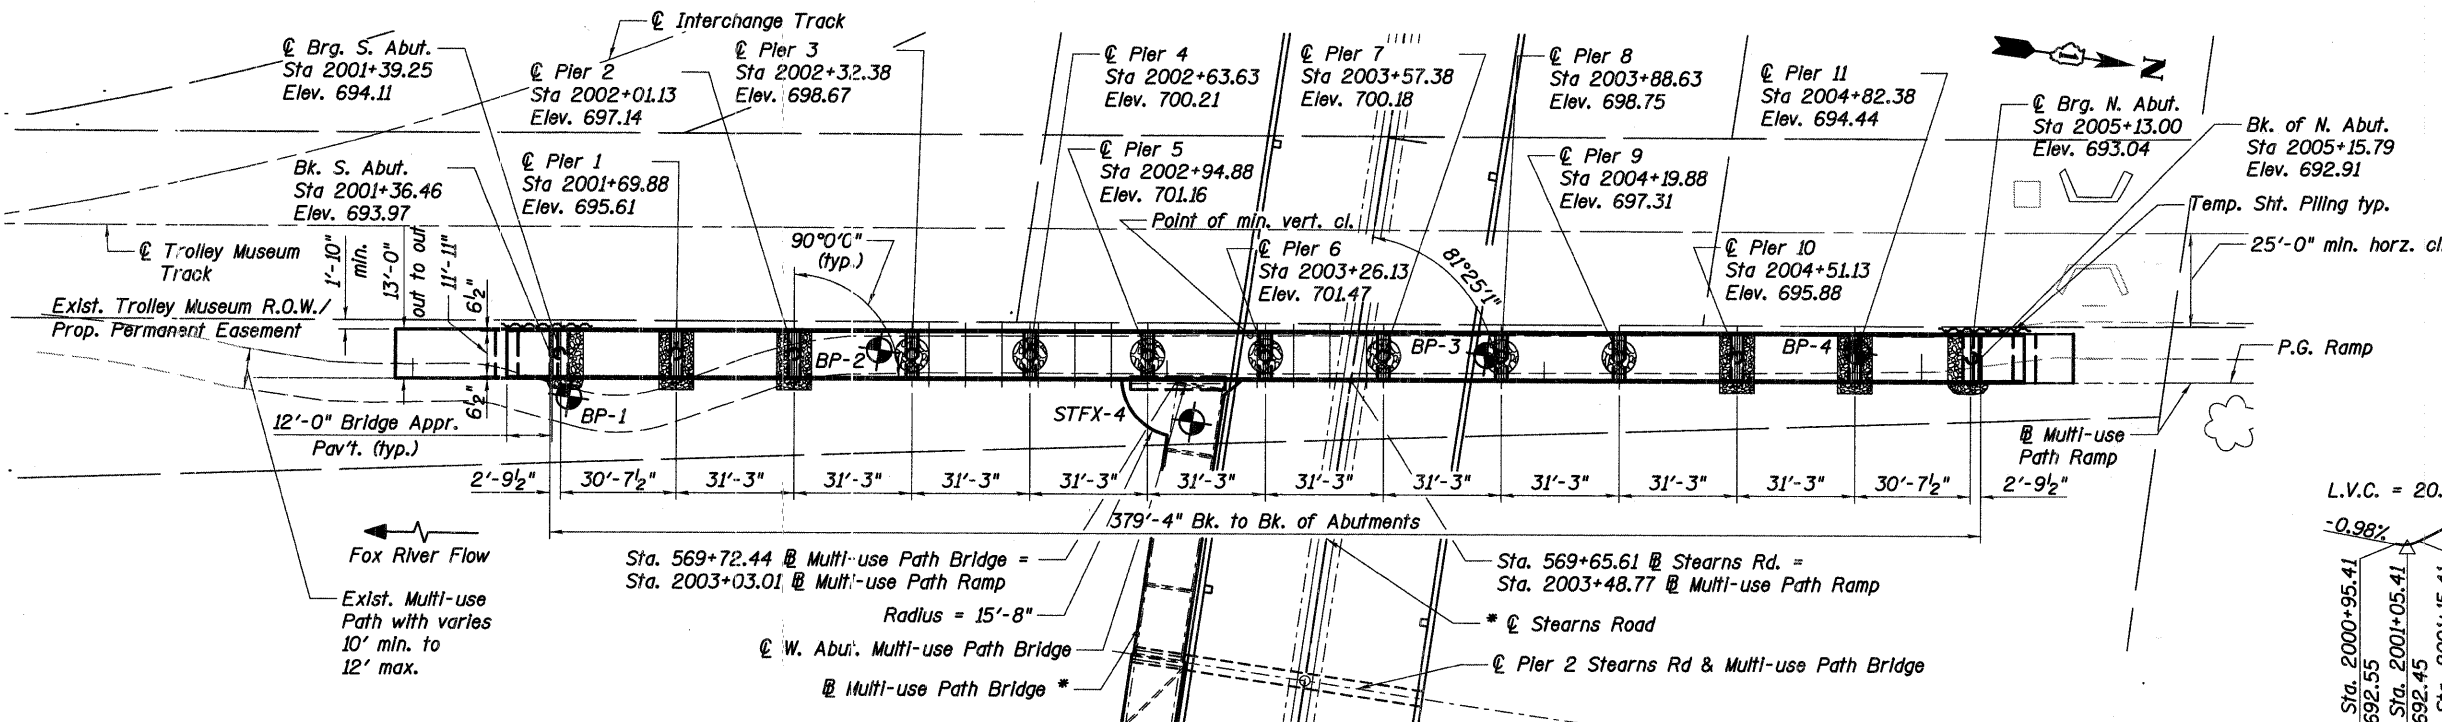 ℄ Interchange Track
℄ Brg. S. Abut.
Sta 2001+39.25
Elev. 694.11
℄ Pier 2
Sta 2002+01.13
Elev. 697.14
℄ Pier 3
Sta 2002+32.38
Elev. 698.67
℄ Pier 4
Sta 2002+63.63
Elev. 700.21
℄ Pier 7
Sta 2003+57.38
Elev. 700.18
℄ Pier 8
Sta 2003+88.63
Elev. 698.75
℄ Pier 11
Sta 2004+82.38
Elev. 694.44
N
℄ Brg. N. Abut.
Sta 2005+13.00
Elev. 693.04
Bk. of N. Abut.
Sta 2005+15.79
Elev. 692.91
Bk. S. Abut.
Sta 2001+36.46
Elev. 693.97
℄ Pier 1
Sta 2001+69.88
Elev. 695.61
℄ Pier 5
Sta 2002+94.88
Elev. 701.16
℄ Pier 9
Sta 2004+19.88
Elev. 697.31
Temp. Sht. Piling typ.
Point of min. vert. cl.
℄ Trolley Museum
Track
1'-10"
min.
13'-0"
out to out
11'-11"
6½"
6½"
90°0'0"
(typ.)
℄ Pier 6
Sta 2003+26.13
Elev. 701.47
81°25'1"
℄ Pier 10
Sta 2004+51.13
Elev. 695.88
25'-0" min. horz. cl.
Exist. Trolley Museum R.O.W./
Prop. Permanent Easement
BP-2
BP-3
BP-4
P.G. Ramp
BP-1
STFX-4
12'-0" Bridge Appr.
Pav't. (typ.)
℄ Multi-use
Path Ramp
2'-9½" 30'-7½" 31'-3" 31'-3" 31'-3" 31'-3" 31'-3" 31'-3" 31'-3" 31'-3" 31'-3" 31'-3" 30'-7½" 2'-9½"
379'-4" Bk. to Bk. of Abutments
L.V.C. = 20.
-0.98%
Fox River Flow
Sta. 569+72.44 ℄ Multi-use Path Bridge =
Sta. 2003+03.01 ℄ Multi-use Path Ramp
Sta. 569+65.61 ℄ Stearns Rd. =
Sta. 2003+48.77 ℄ Multi-use Path Ramp
Exist. Multi-use
Path with varies
10' min. to
12' max.
Radius = 15'-8"
* ℄ Stearns Road
℄ W. Abut. Multi-use Path Bridge
℄ Pier 2 Stearns Rd & Multi-use Path Bridge
℄ Multi-use Path Bridge *
Sta. 2000+95.41
692.55
Sta. 2001+05.41
692.45